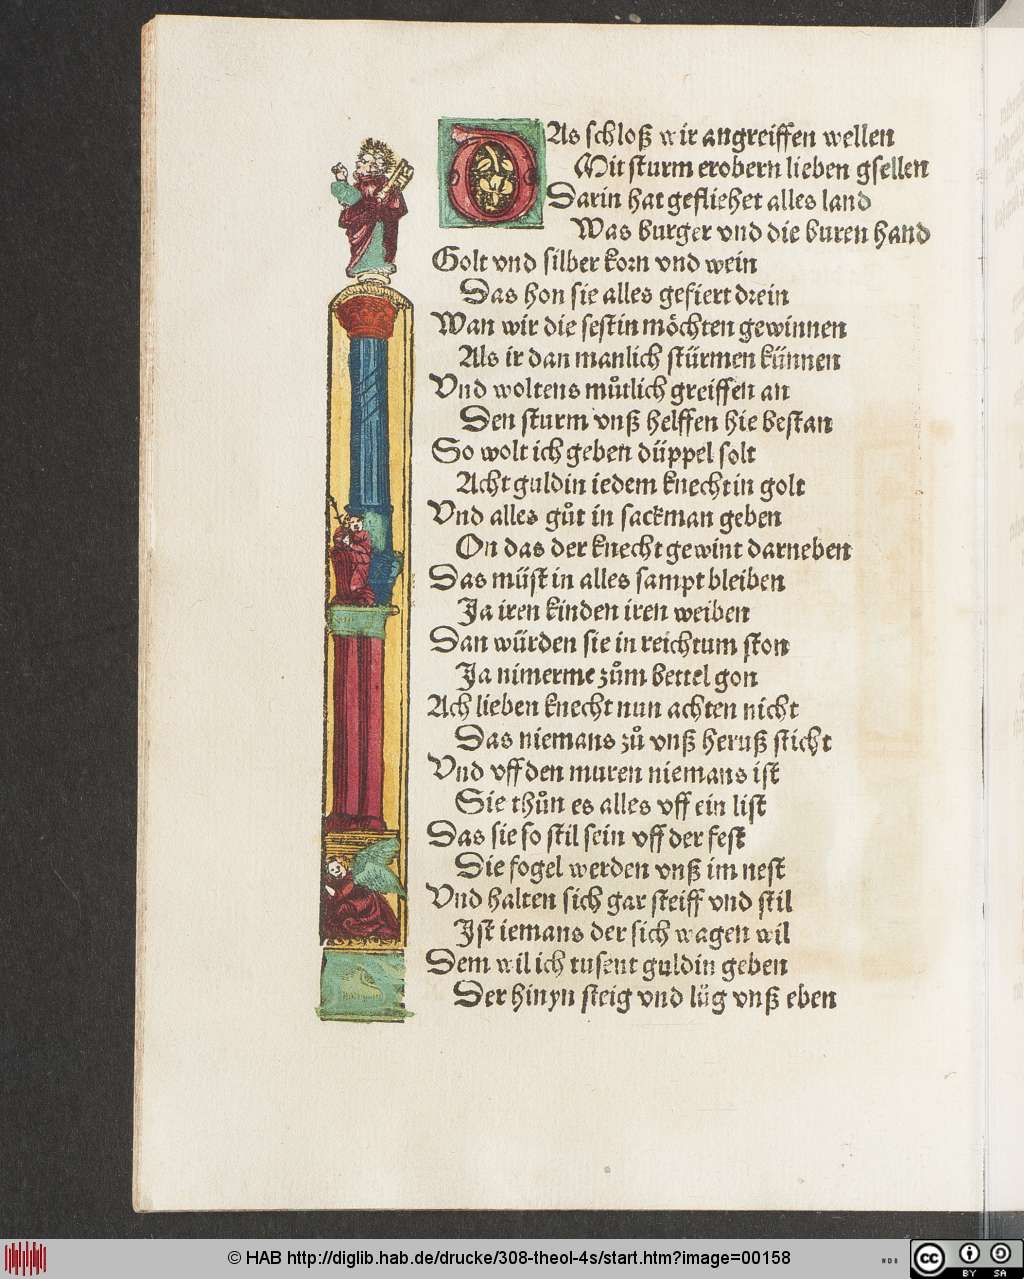 DAs schloß wir angreiffen wellen
Mit sturm erobern lieben gsellen
Darin hat gefliehet alles land
Was burger vnd die buren hand
Golt vnd silber korn vnd wein
Das hon sie alles gefiert drein
Wan wir die festin möchten gewinnen
Als ir dan manlich stürmen künnen
Vnd woltens můtlich greiffen an
Den sturm vnß helffen hie bestan
So wolt ich geben düppel solt
Acht guldin iedem knecht in golt
Vnd alles gůt in sackman geben
On das der knecht gewint darneben
Das müst in alles sampt bleiben
Ja iren kinden iren weiben
Dan würden sie in reichtum ston
Ja nimerme zům bettel gon
Ach lieben knecht nun achten nicht
Das niemans zů vnß heruß sticht
Vnd vff den muren niemans ist
Sie thůn es alles vff ein list
Das sie so stil sein vff der fest
Die fogel werden vnß im nest
Vnd halten sich gar steiff vnd stil
Ist iemans der sich wagen wil
Dem wil ich tusent guldin geben
Der hinyn steig vnd lüg vnß eben
© HAB http://diglib.hab.de/drucke/308-theol-4s/start.htm?image=00158
WDB
cc
BY SA